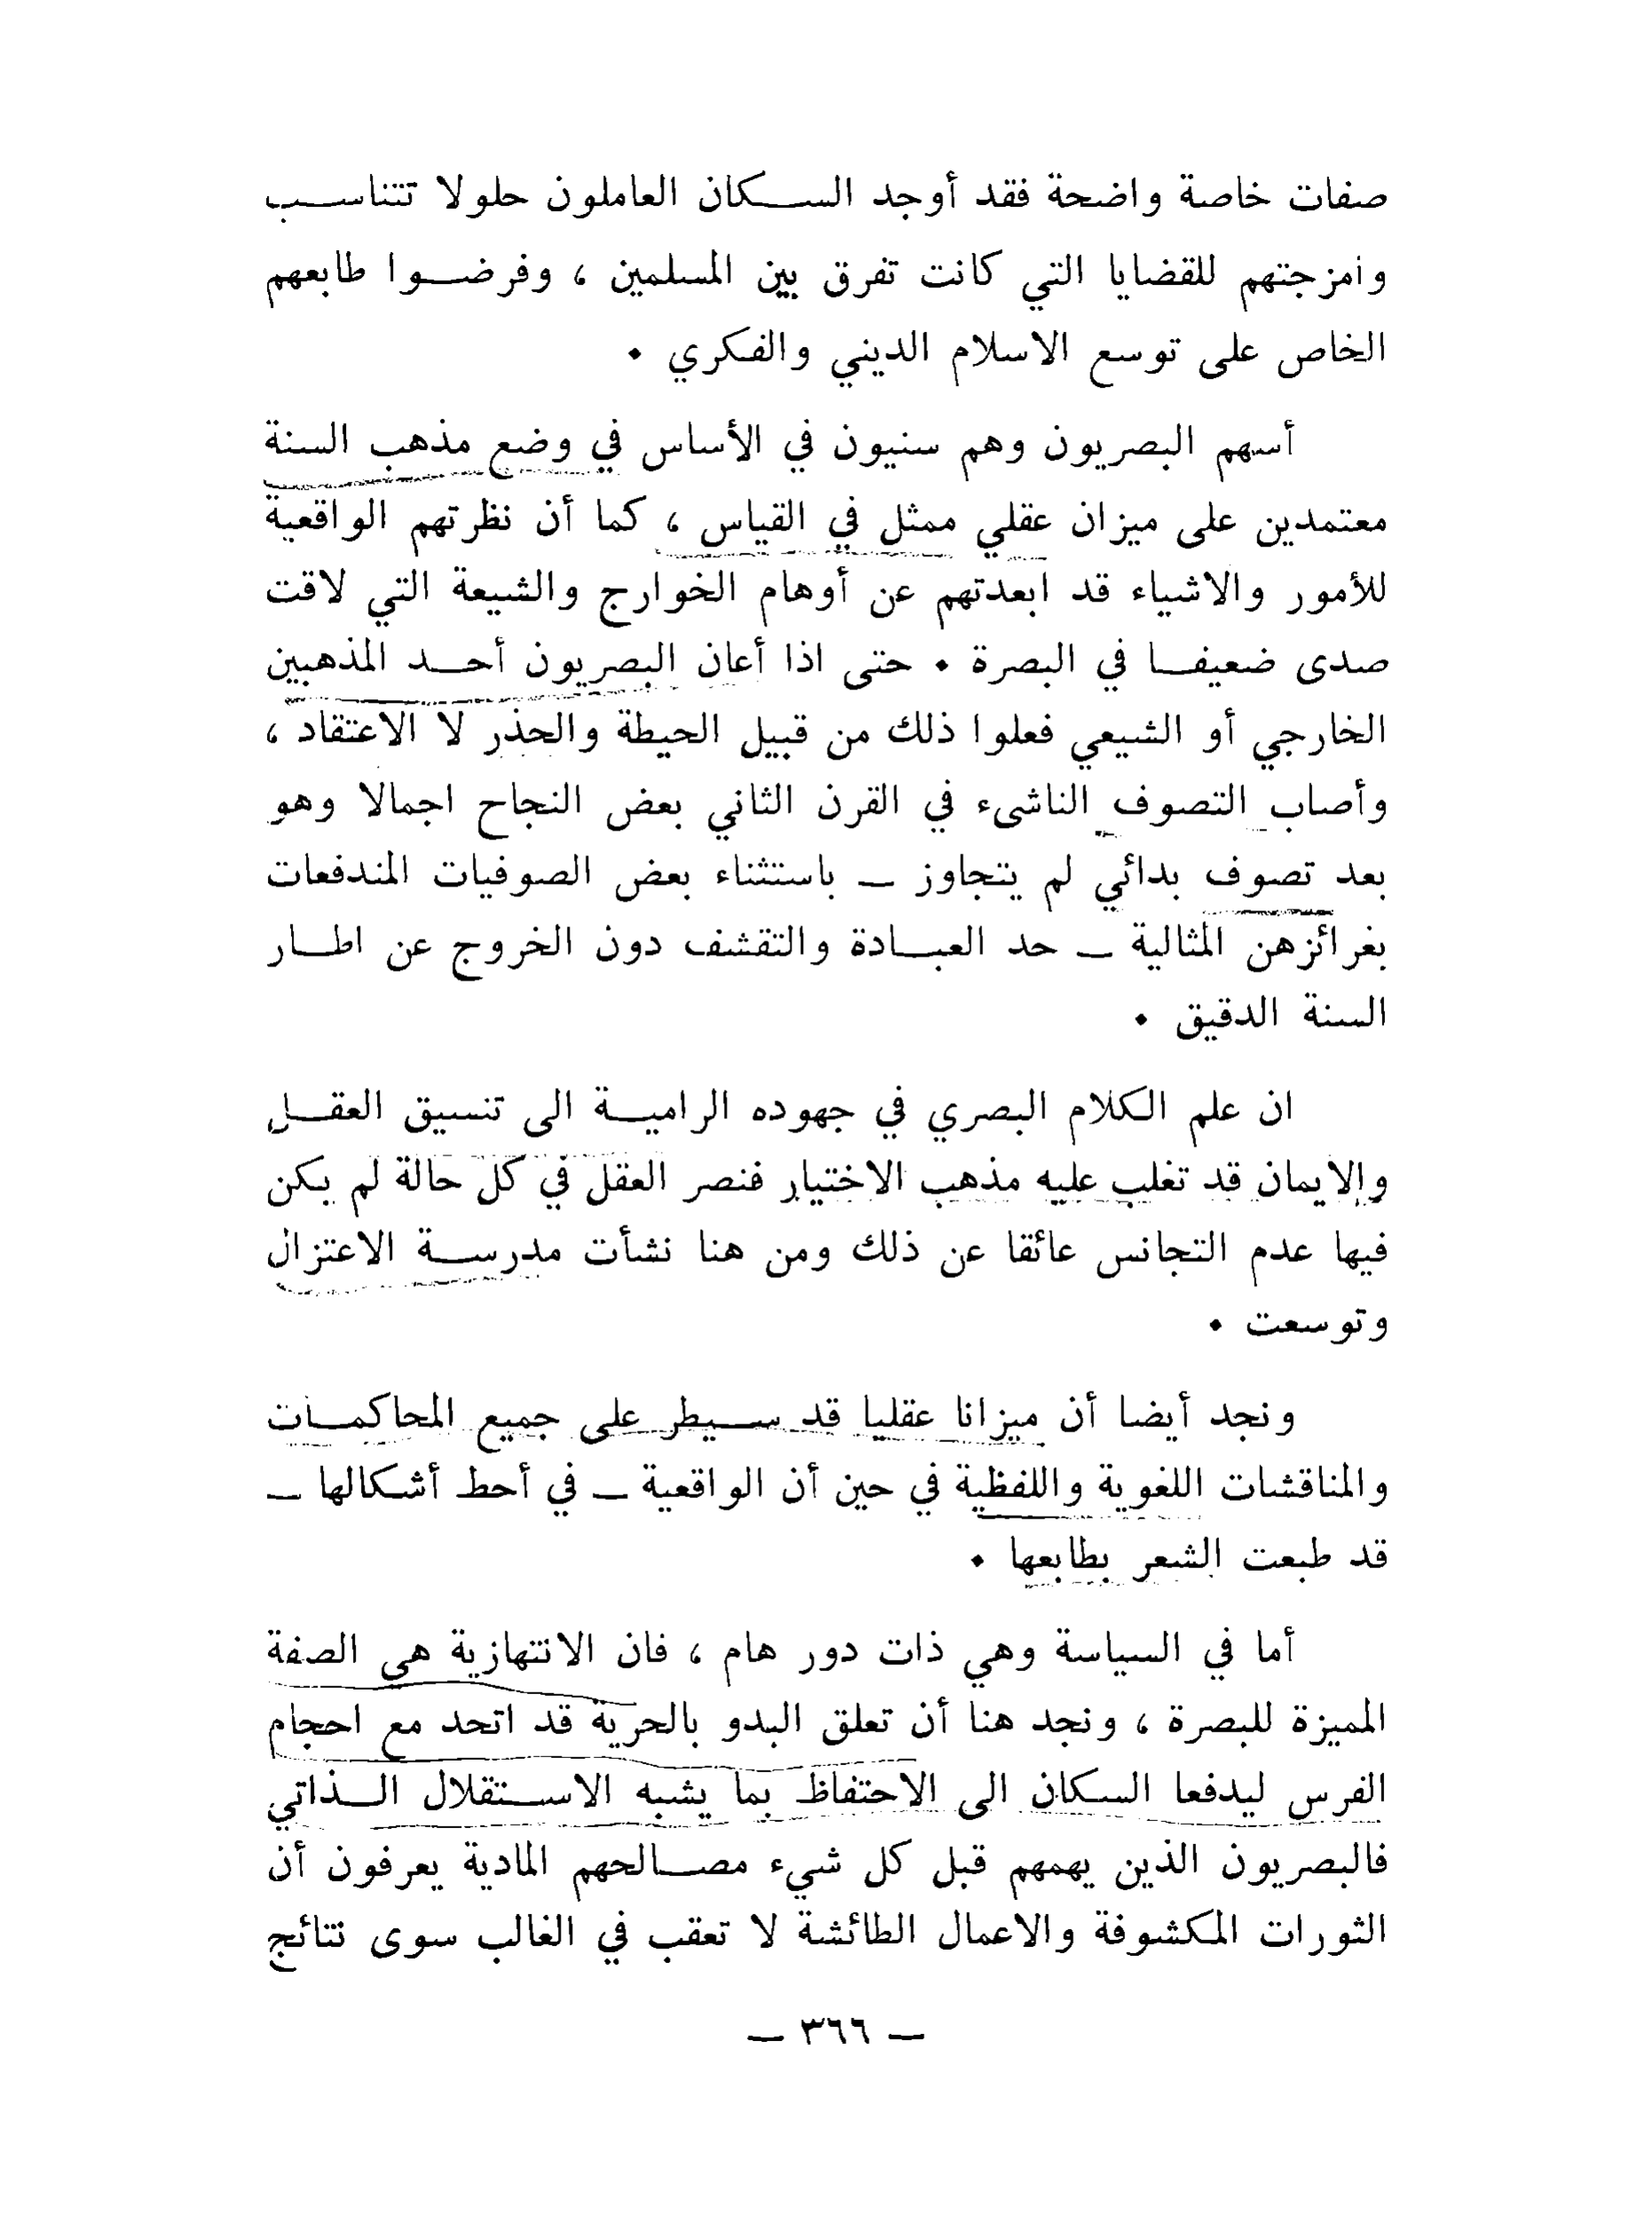 صفات خاصة واضحة فقد أوجد السكان العاملون حلولا تتناسب
وأمزجتهم للقضايا التي كانت تفرق بين المسلمين ، وفرضوا طابعهم
الخاص على توسع الاسلام الديني والفكري .
أسهم البصريون وهم سنيون في الأساس في وضع مذهب السنة
معتمدين على ميزان عقلي ممثل في القياس ، كما أن نظرتهم الواقعية
للأمور والاشياء قد ابعدتهم عن أوهام الخوارج والشيعة التي لاقت
صدى ضعيفا في البصرة . حتى اذا أعان البصريون أحد المذهبين
الخارجي أو الشيعي فعلوا ذلك من قبيل الحيطة والحذر لا الاعتقاد ،
وأصاب التصوف الناشىء في القرن الثاني بعض النجاح اجمالا وهو
بعد تصوف بدائي لم يتجاوز – باستثناء بعض الصوفيات المندفعات
بغرائزهن المثالية – حد العبادة والتقشف دون الخروج عن اطار
السنة الدقيق .
ان علم الكلام البصري في جهوده الرامية الى تنسيق العقل
والايمان قد تغلب عليه مذهب الاختيار فنصر العقل في كل حالة لم يكن
فيها عدم التجانس عائقا عن ذلك ومن هنا نشأت مدرسة الاعتزال
وتوسعت .
ونجد أيضا أن ميزانا عقليا قد سيطر على جميع المحاكمات
والمناقشات اللغوية واللفظية في حين أن الواقعية – في أحط أشكالها –
قد طبعت الشعر بطابعها .
أما في السياسة وهي ذات دور هام ، فان الانتهازية هي الصفة
المميزة للبصرة ، ونجد هنا أن تعلق البدو بالحرية قد اتحد مع احجام
الفرس ليدفعا السكان الى الاحتفاظ بما يشبه الاستقلال الذاتي
فالبصريون الذين يهمهم قبل كل شيء مصالحهم المادية يعرفون أن
الثورات المكشوفة والاعمال الطائشة لا تعقب في الغالب سوى نتائج
– ٣٦٦ –